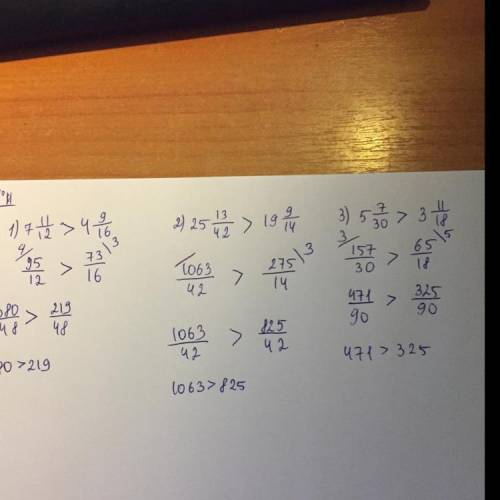 1) 7 11/12 > 4 9/16
4/ 95/12 > 73/16 \3
380/48 > 219/48
380 > 219
2) 25 13/42 > 19 9/14
/ 1063/42 > 275/14 \3
1063/42 > 825/42
1063 > 825
3) 5 7/30 > 3 11/18
3/ 157/30 > 65/18 \5
471/90 > 325/90
471 > 325